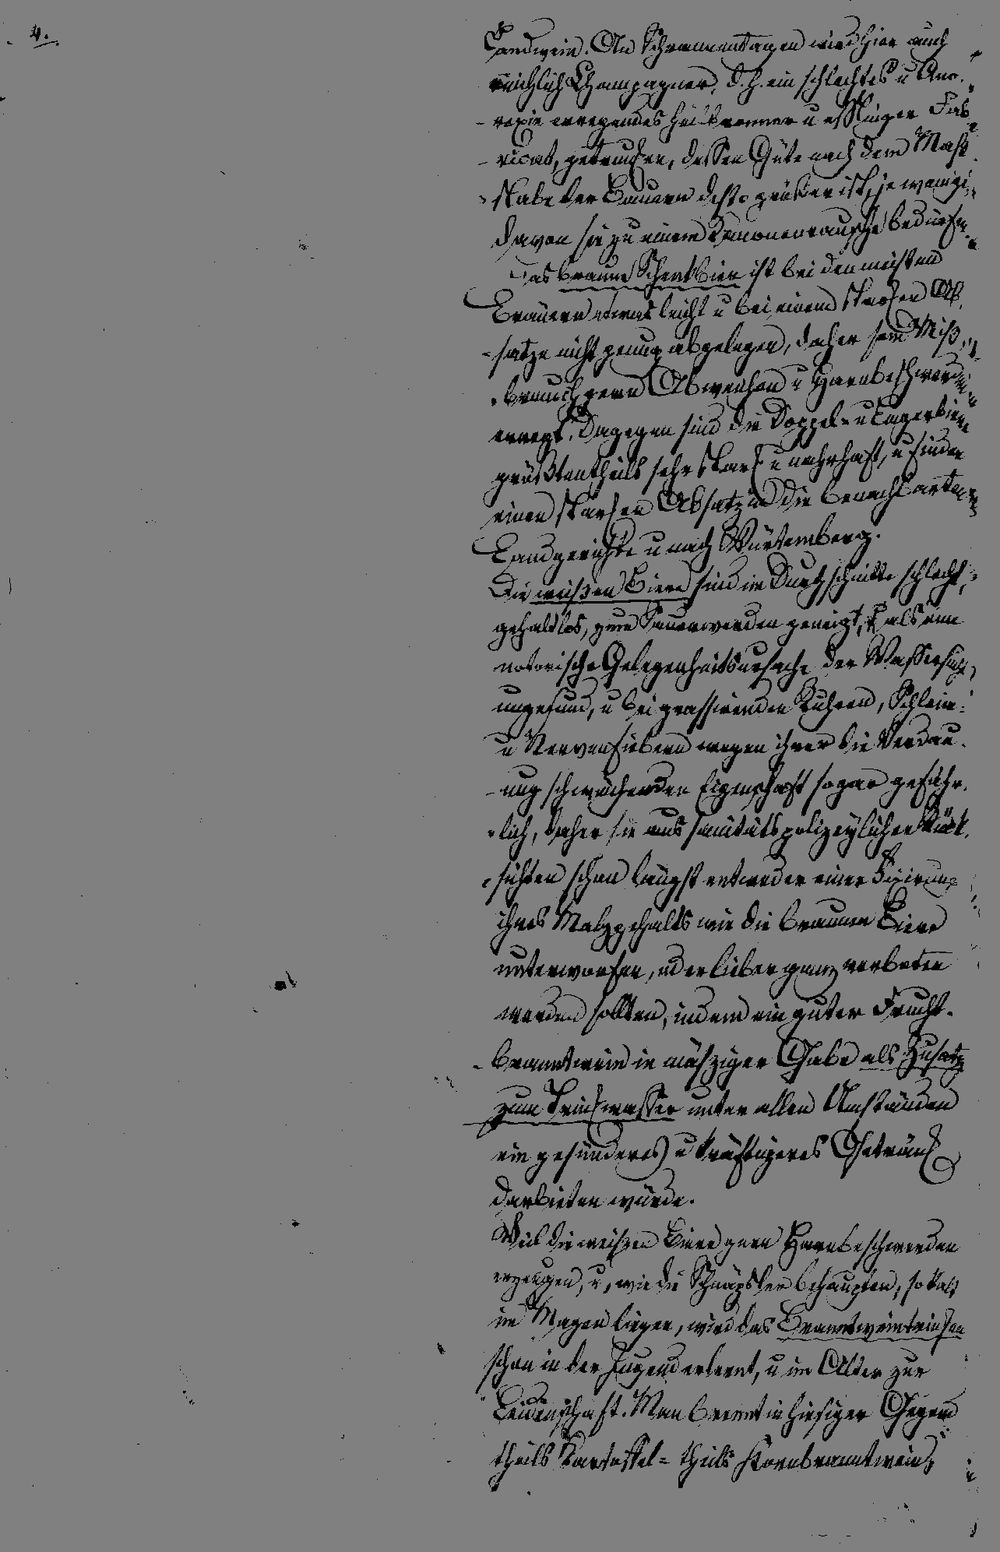 4.
Landwein. An Schrannentagen wird hier auch
reichlich Champagner, d. h. ein schlechtes u Ano-
rexie erregendes heilbronner u esslinger Fab-
ricat, getrunken, dessen Güte nach dem Maß-
stabe der Bauern desto größer ist, je weniger
davon sie zu einem Kanonenrausche bedürfen.
Das braune Schenkbier ist bei den meisten
Bräuern etwas leicht u bei einem starken Ab-
satze nicht genug abgelegen, daher sein Miß-
brauch gern Abweichen u Harnbeschwerden
erregt. Dagegen sind die Doppel- u Lagerbiere
größtentheils sehr stark u nahrhaft, u finden
einen starken Absatz in die benachbarten
Landgerichte u nach Würtemberg.
Die weißen Biere sind im Durchschnitte schlecht,
gehaltlos, zum Sauerwerden geneigt, als eine
notorische Gelegenheitsursache der Wassersucht
ungesund, u bei grassirenden Ruhren, Schleim-
u Nervenfiebern wegen ihrer die Verdau-
ung schwächenden Eigenschaft sogar gefähr-
lich, daher sie aus sanitätspolizeylichen Rück-
sichten schon längst entweder einer Fixirung
ihres Malzgehalts wie die braunen Biere
unterworfen, oder lieber ganz verboten
werden sollten, indem ein guter Frucht-
branntwein in mäßiger Gabe als Zusatz
zum Trinkwasser unter allen Umständen
ein gesünderes u kräftigeres Getränk
darbieten würde.
Weil die weißen Biere gern Harnbeschwerden
erzeugen, u, wie die Schnäpsler behaupten, so kalt
im Magen liegen, wird das Branntweintrinken
schon in der Jugend erlernt, u im Alter zur
Leidenschaft. Man brennt in hiesiger Gegend
theils Kartoffel- theils Kornbranntwein,